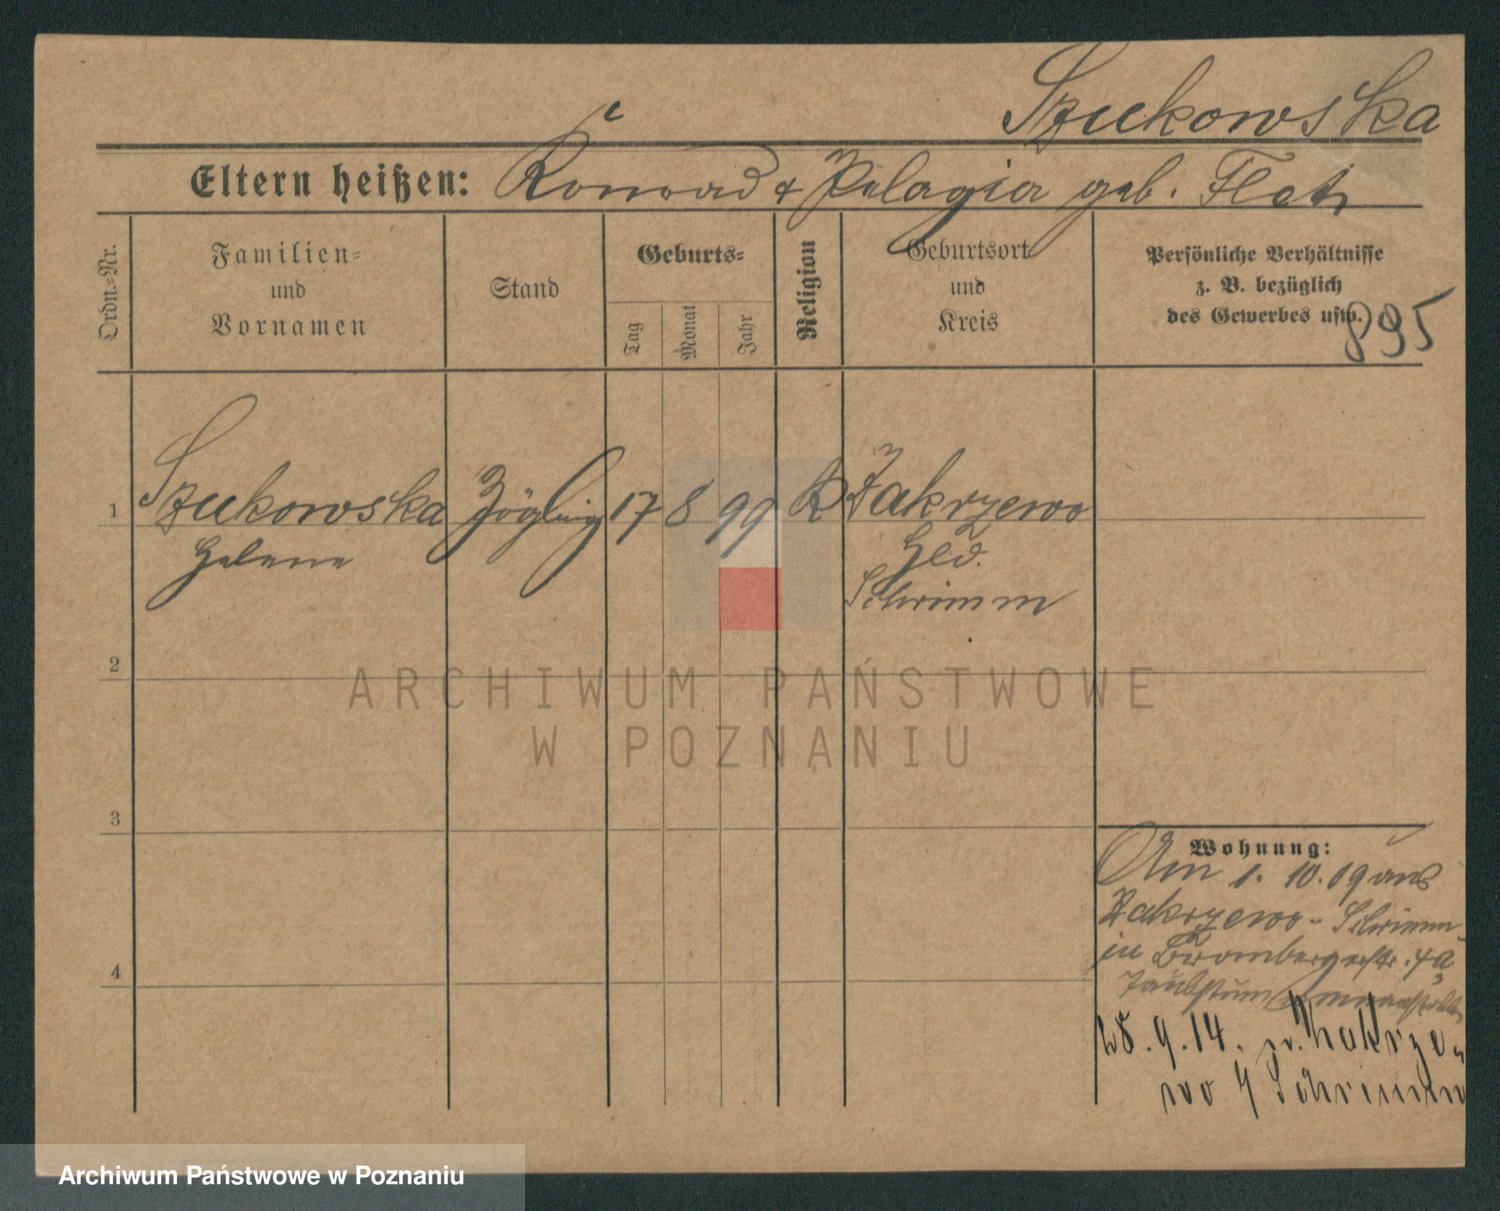 Szukowska
Eltern heißen: Konrad & Pelagia geb. Flotz
Ordn.-Nr.
Familien-
und
Vornamen
Stand
Geburts-
Tag
Monat
Jahr
Religion
Geburtsort
und
Kreis
Persönliche Verhältnisse
z. B. bezüglich
des Gewerbes usw.
895
1 Szukowska Zögling 17 8 99 K Zakrzewo
Helene
Hld.
Schrimm
2
3
4
Wohnung:
Am 1. 10. 09 aus
Zakrzewo - Schrimm
in Brombergerstr. 4a
Taubstummenanstalt
28. 9. 14. n. Zakrze-
wo Schrimm
ARCHIWUM PAŃSTWOWE
W POZNANIU
Archiwum Państwowe w Poznaniu